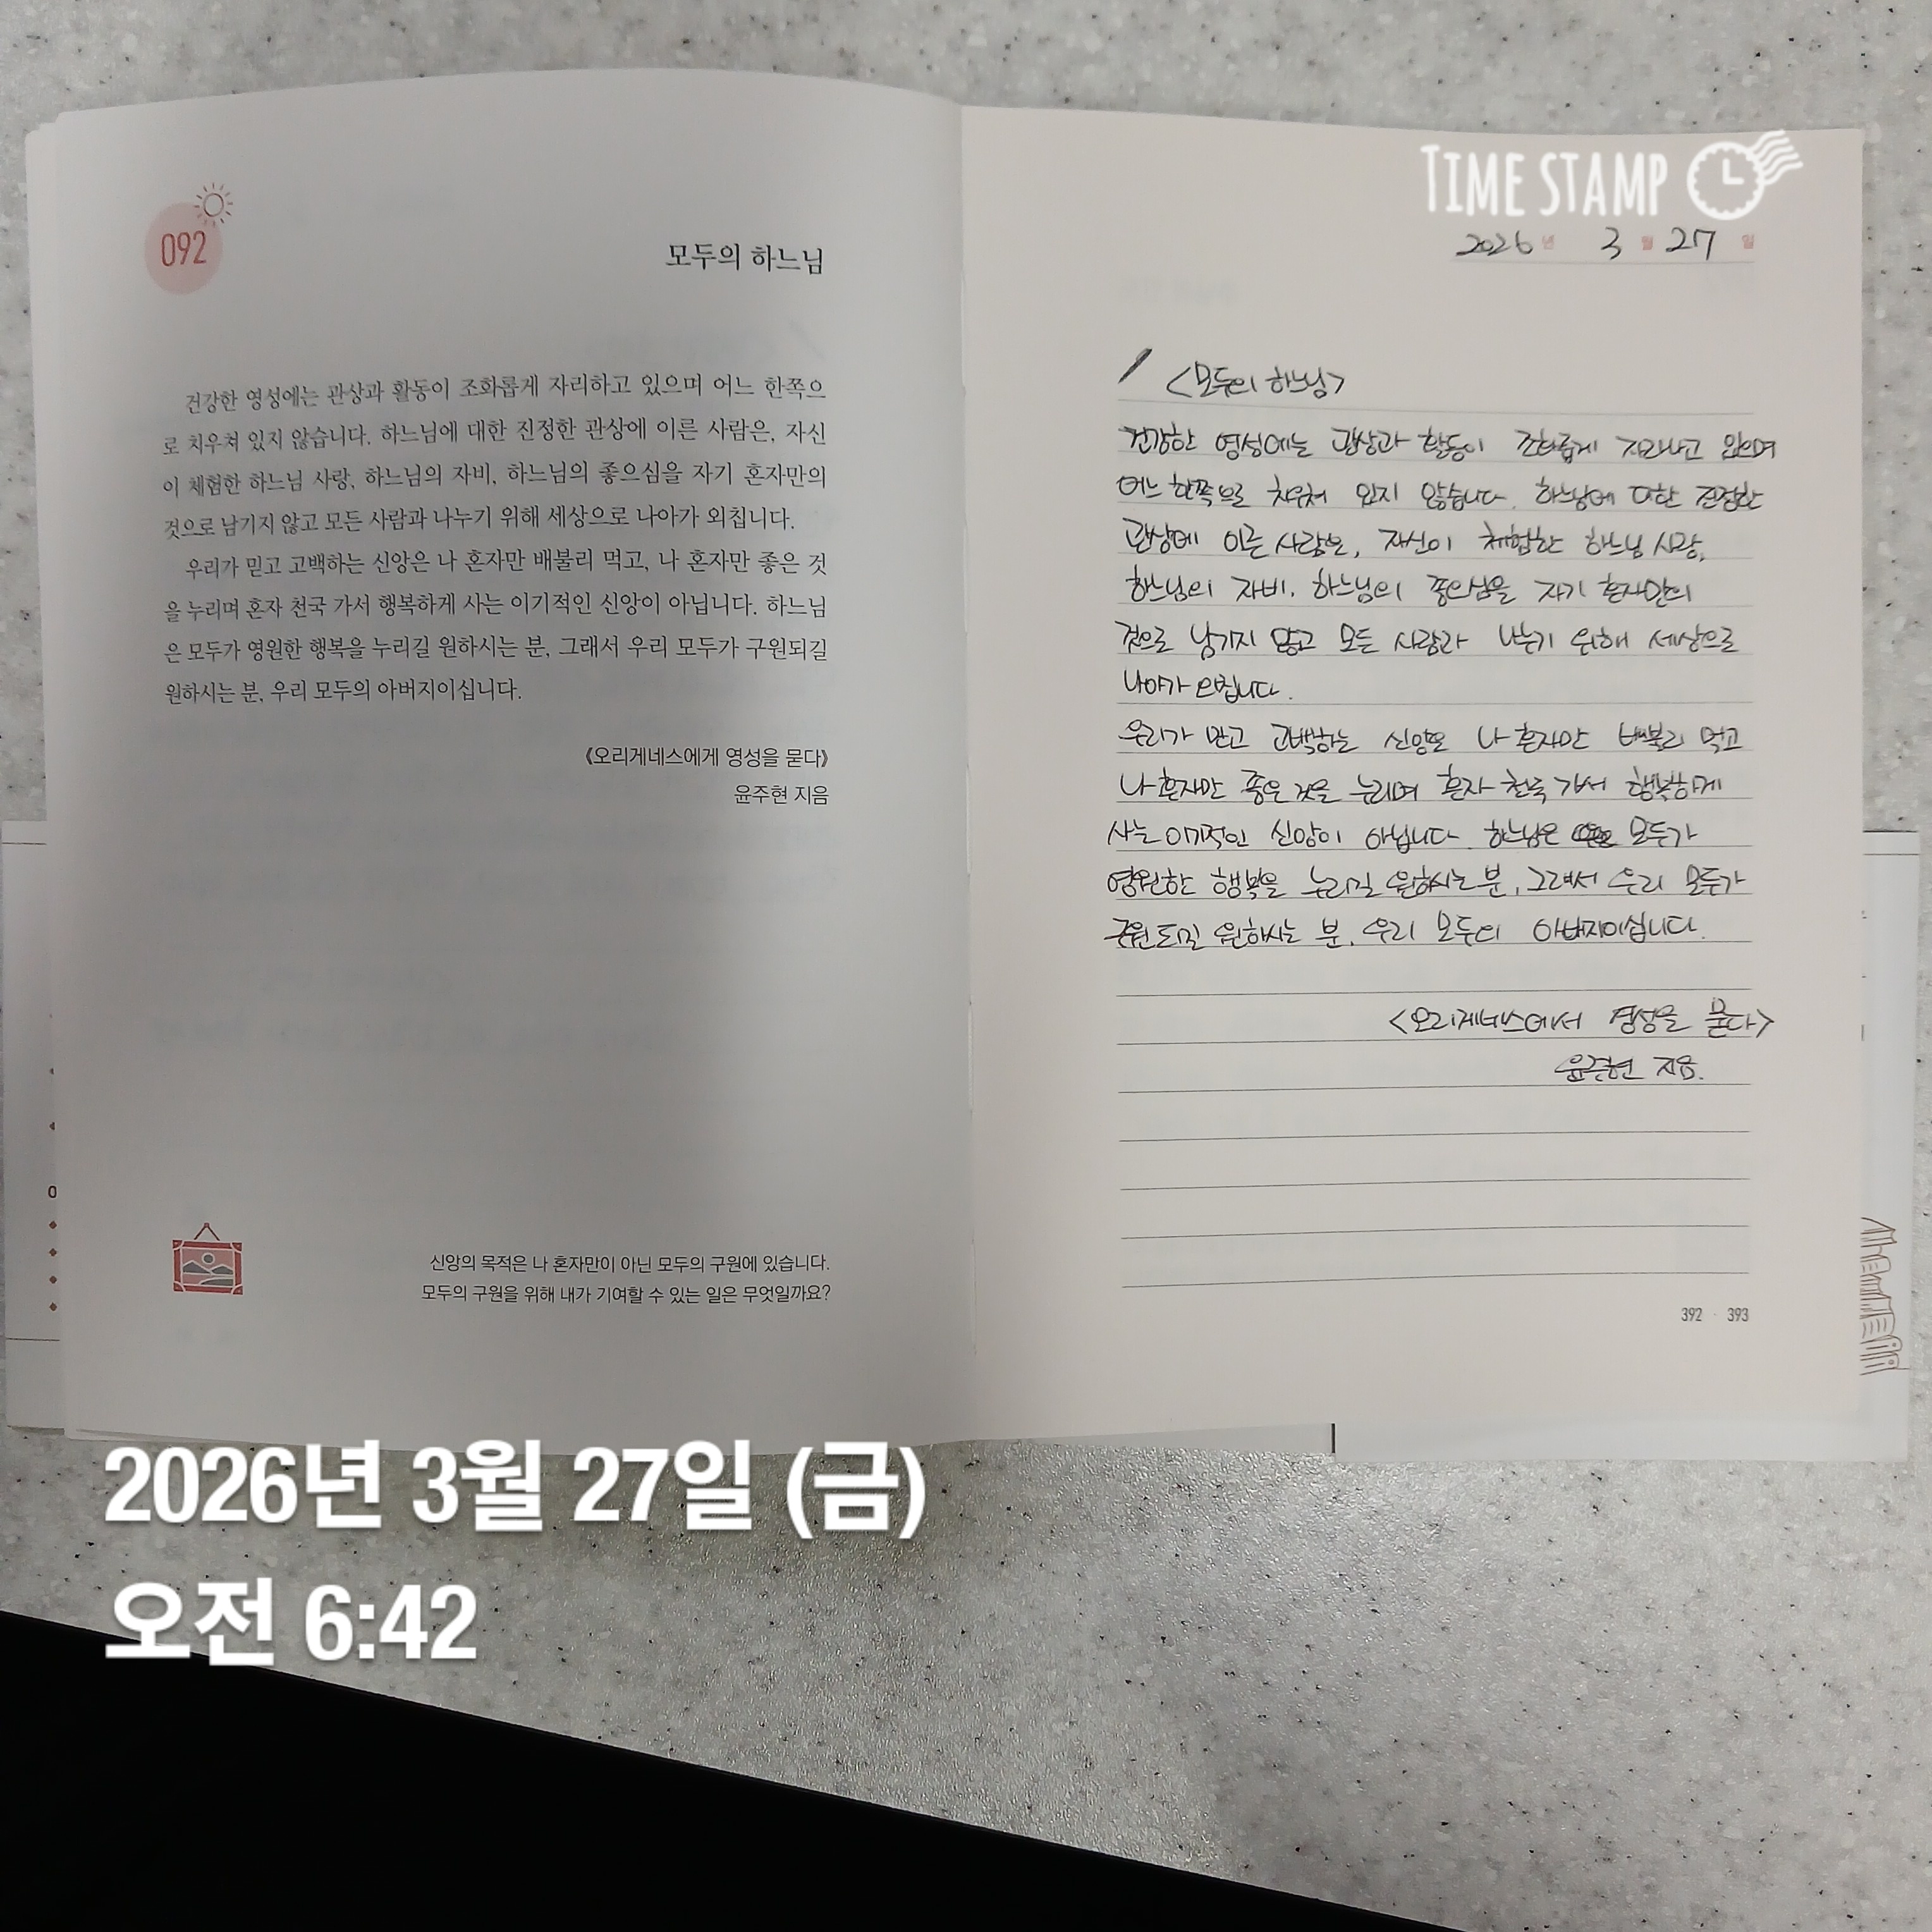 092
모두의 하느님
건강한 영성에는 관상과 활동이 조화롭게 자리하고 있으며 어느 한쪽으
로 치우쳐 있지 않습니다. 하느님에 대한 진정한 관상에 이른 사람은, 자신
이 체험한 하느님 사랑, 하느님의 자비, 하느님의 좋으심을 자기 혼자만의
것으로 남기지 않고 모든 사람과 나누기 위해 세상으로 나아가 외칩니다.
우리가 믿고 고백하는 신앙은 나 혼자만 배불리 먹고, 나 혼자만 좋은 것
을 누리며 혼자 천국 가서 행복하게 사는 이기적인 신앙이 아닙니다. 하느님
은 모두가 영원한 행복을 누리길 원하시는 분, 그래서 우리 모두가 구원되길
원하시는 분, 우리 모두의 아버지이십니다.
《오리게네스에게 영성을 묻다》
윤주현 지음
신앙의 목적은 나 혼자만이 아닌 모두의 구원에 있습니다.
모두의 구원을 위해 내가 기여할 수 있는 일은 무엇일까요?
TIME STAMP
2026년 3월 27일
<모두의 하느님>
건강한 영성에는 관상과 활동이 조화롭게 자리하고 있으며
어느 한쪽으로 치우쳐 있지 않습니다. 하느님에 대한 진정한
관상에 이른 사람은, 자신이 체험한 하느님 사랑,
하느님의 자비, 하느님의 좋으심을 자기 혼자만의
것으로 남기지 않고 모든 사람과 나누기 위해 세상으로
나아가 외칩니다.
우리가 믿고 고백하는 신앙은 나 혼자만 배불리 먹고
나 혼자만 좋은 것을 누리며 혼자 천국 가서 행복하게
사는 이기적인 신앙이 아닙니다. 하느님은 모두가
영원한 행복을 누리길 원하시는 분, 그래서 우리 모두가
구원되길 원하시는 분, 우리 모두의 아버지이십니다.
<오리게네스에서 영성을 묻다>
윤주현 지음.
392 · 393
2026년 3월 27일 (금)
오전 6:42